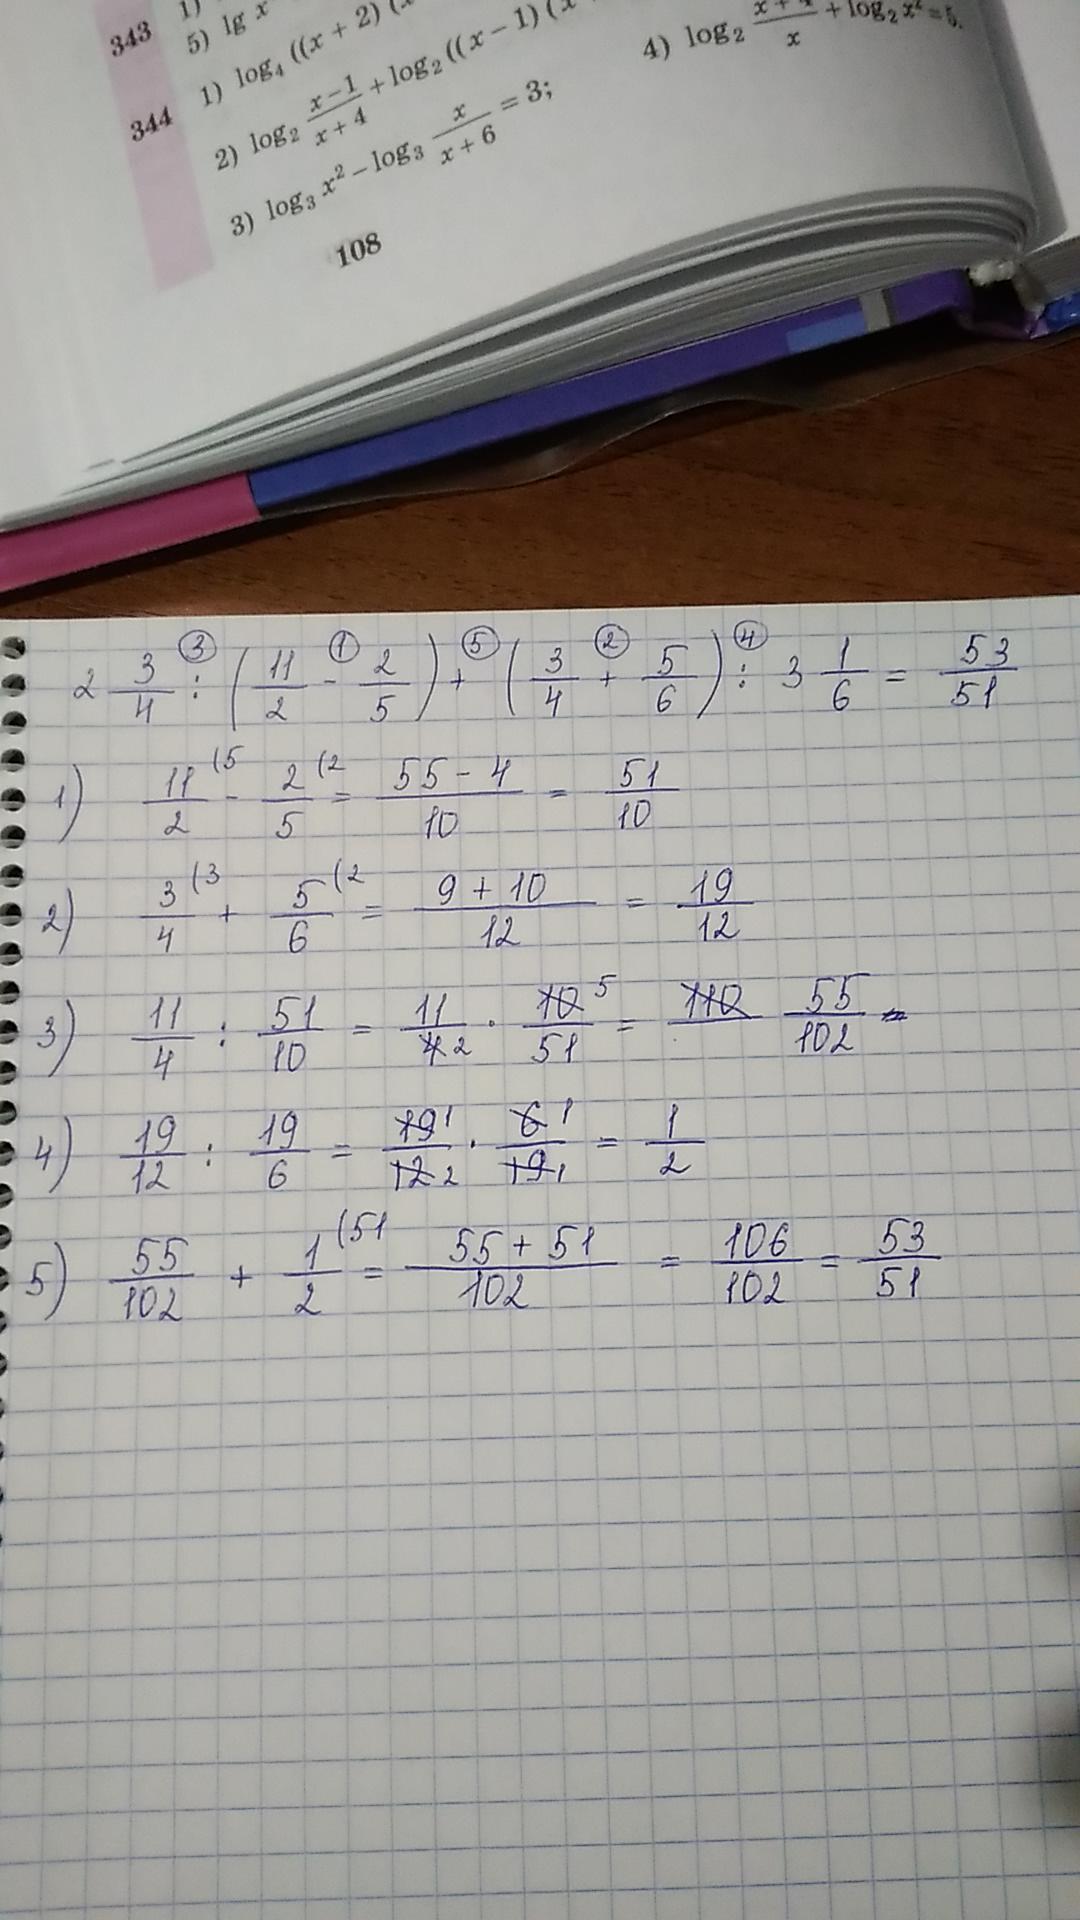 343 1)
5) lg x
344 1) log₄ ((x + 2) (x
2) log₂ (x − 1)/(x + 4) + log₂ ((x − 1) (x
3) log₃ x² − log₃ x/(x + 6) = 3;
4) log₂ /x + log₂ x² = 5.
108
③ ① ⑤ ② ④
2 3/4 : (11/2 - 2/5) + (3/4 + 5/6) : 3 1/6 = 53/51
1) 11/2 (5 - 2/5 (2 = (55 - 4)/10 = 51/10
2) 3/4 (3 + 5/6 (2 = (9 + 10)/12 = 19/12
3) 11/4 : 51/10 = 11/4 2 · 10 5/51 = 110 55/102
4) 19/12 : 19/6 = 19 1/12 2 · 6 1/19 1 = 1/2
5) 55/102 + 1/2 (51 = (55 + 51)/102 = 106/102 = 53/51